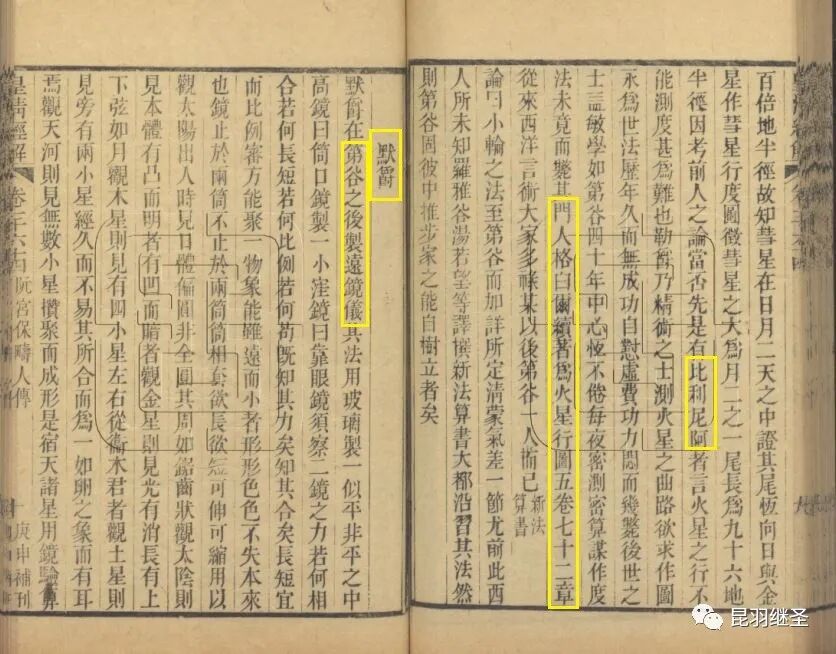 百倍地半徑故知彗星在日月二天之中證其尾恆向日與金
星作彗星行度圖徵彗星之大為月二之一尾長為九十六地
半徑因考前人之論當否先是有比利尼阿者言火星之行不
能測度甚為難也勒酋乃精術之士測火星之曲路欲求作圖
永為世法歷年久而無成功自懟虛費功力悶而幾斃後世之
士孟敏學如第谷四十年中心恆不倦每夜密測密算謀作度
法未竟而斃其門人格白爾續著為火星行圖五卷七十二章
從來西洋言術大家多祿某以後第谷一人而已新法算書
論曰小輪之法至第谷而加詳所定清蒙氣差一節尤前此西
人所未知羅雅谷湯若望等譯撰新法算書大都沿習其法然
則第谷固彼中推步家之能自樹立者矣
默爵
默爵在第谷之後製遠鏡儀其法用玻璃製一似平非平之中
高鏡曰筒口鏡製一小窪鏡曰靠眼鏡須察二鏡之力若何相
合若何長短若何比例若何苟既知其力矣知其合矣長短宜
而比例審方能聚一物象能雖遠而小者形形色色不失本來
也鏡止於兩筒不止於兩筒筒相套欲長欲短可伸可縮用以
觀太陽出入時見日體偏圓非全圓其周如鋸齒狀觀太陰則
見本體有凸而明者有凹而暗者觀金星則見光有消長有上
下弦如月觀木星則見有四小星左右從衛木君者觀土星則
見旁有兩小星經久而不易其所合而為一如卵之象而有耳
焉觀天河則見無數小星攢聚而成形是宿天諸星用鏡驗算
皇清經解
阮宮保疇人傳
庚申補刊
昆羽继圣